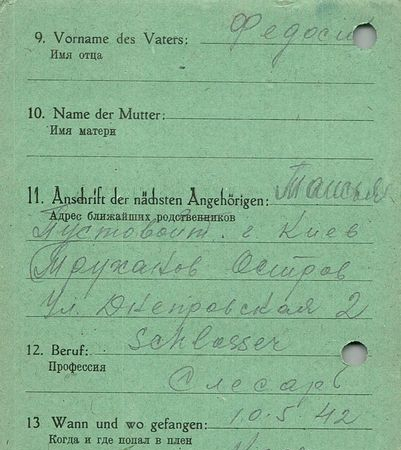 9. Vorname des Vaters: Федос
Имя отца
10. Name der Mutter:
Имя матери
11. Anschrift der nächsten Angehörigen: Таисья
Адрес ближайших родственников
Пустовойт. г Киев
Труханов Остров
Ул. Днепровская 2
12. Beruf: Schlosser
Профессия
Слесарь
13 Wann und wo gefangen: 10.5 42
Когда и где попал в плен